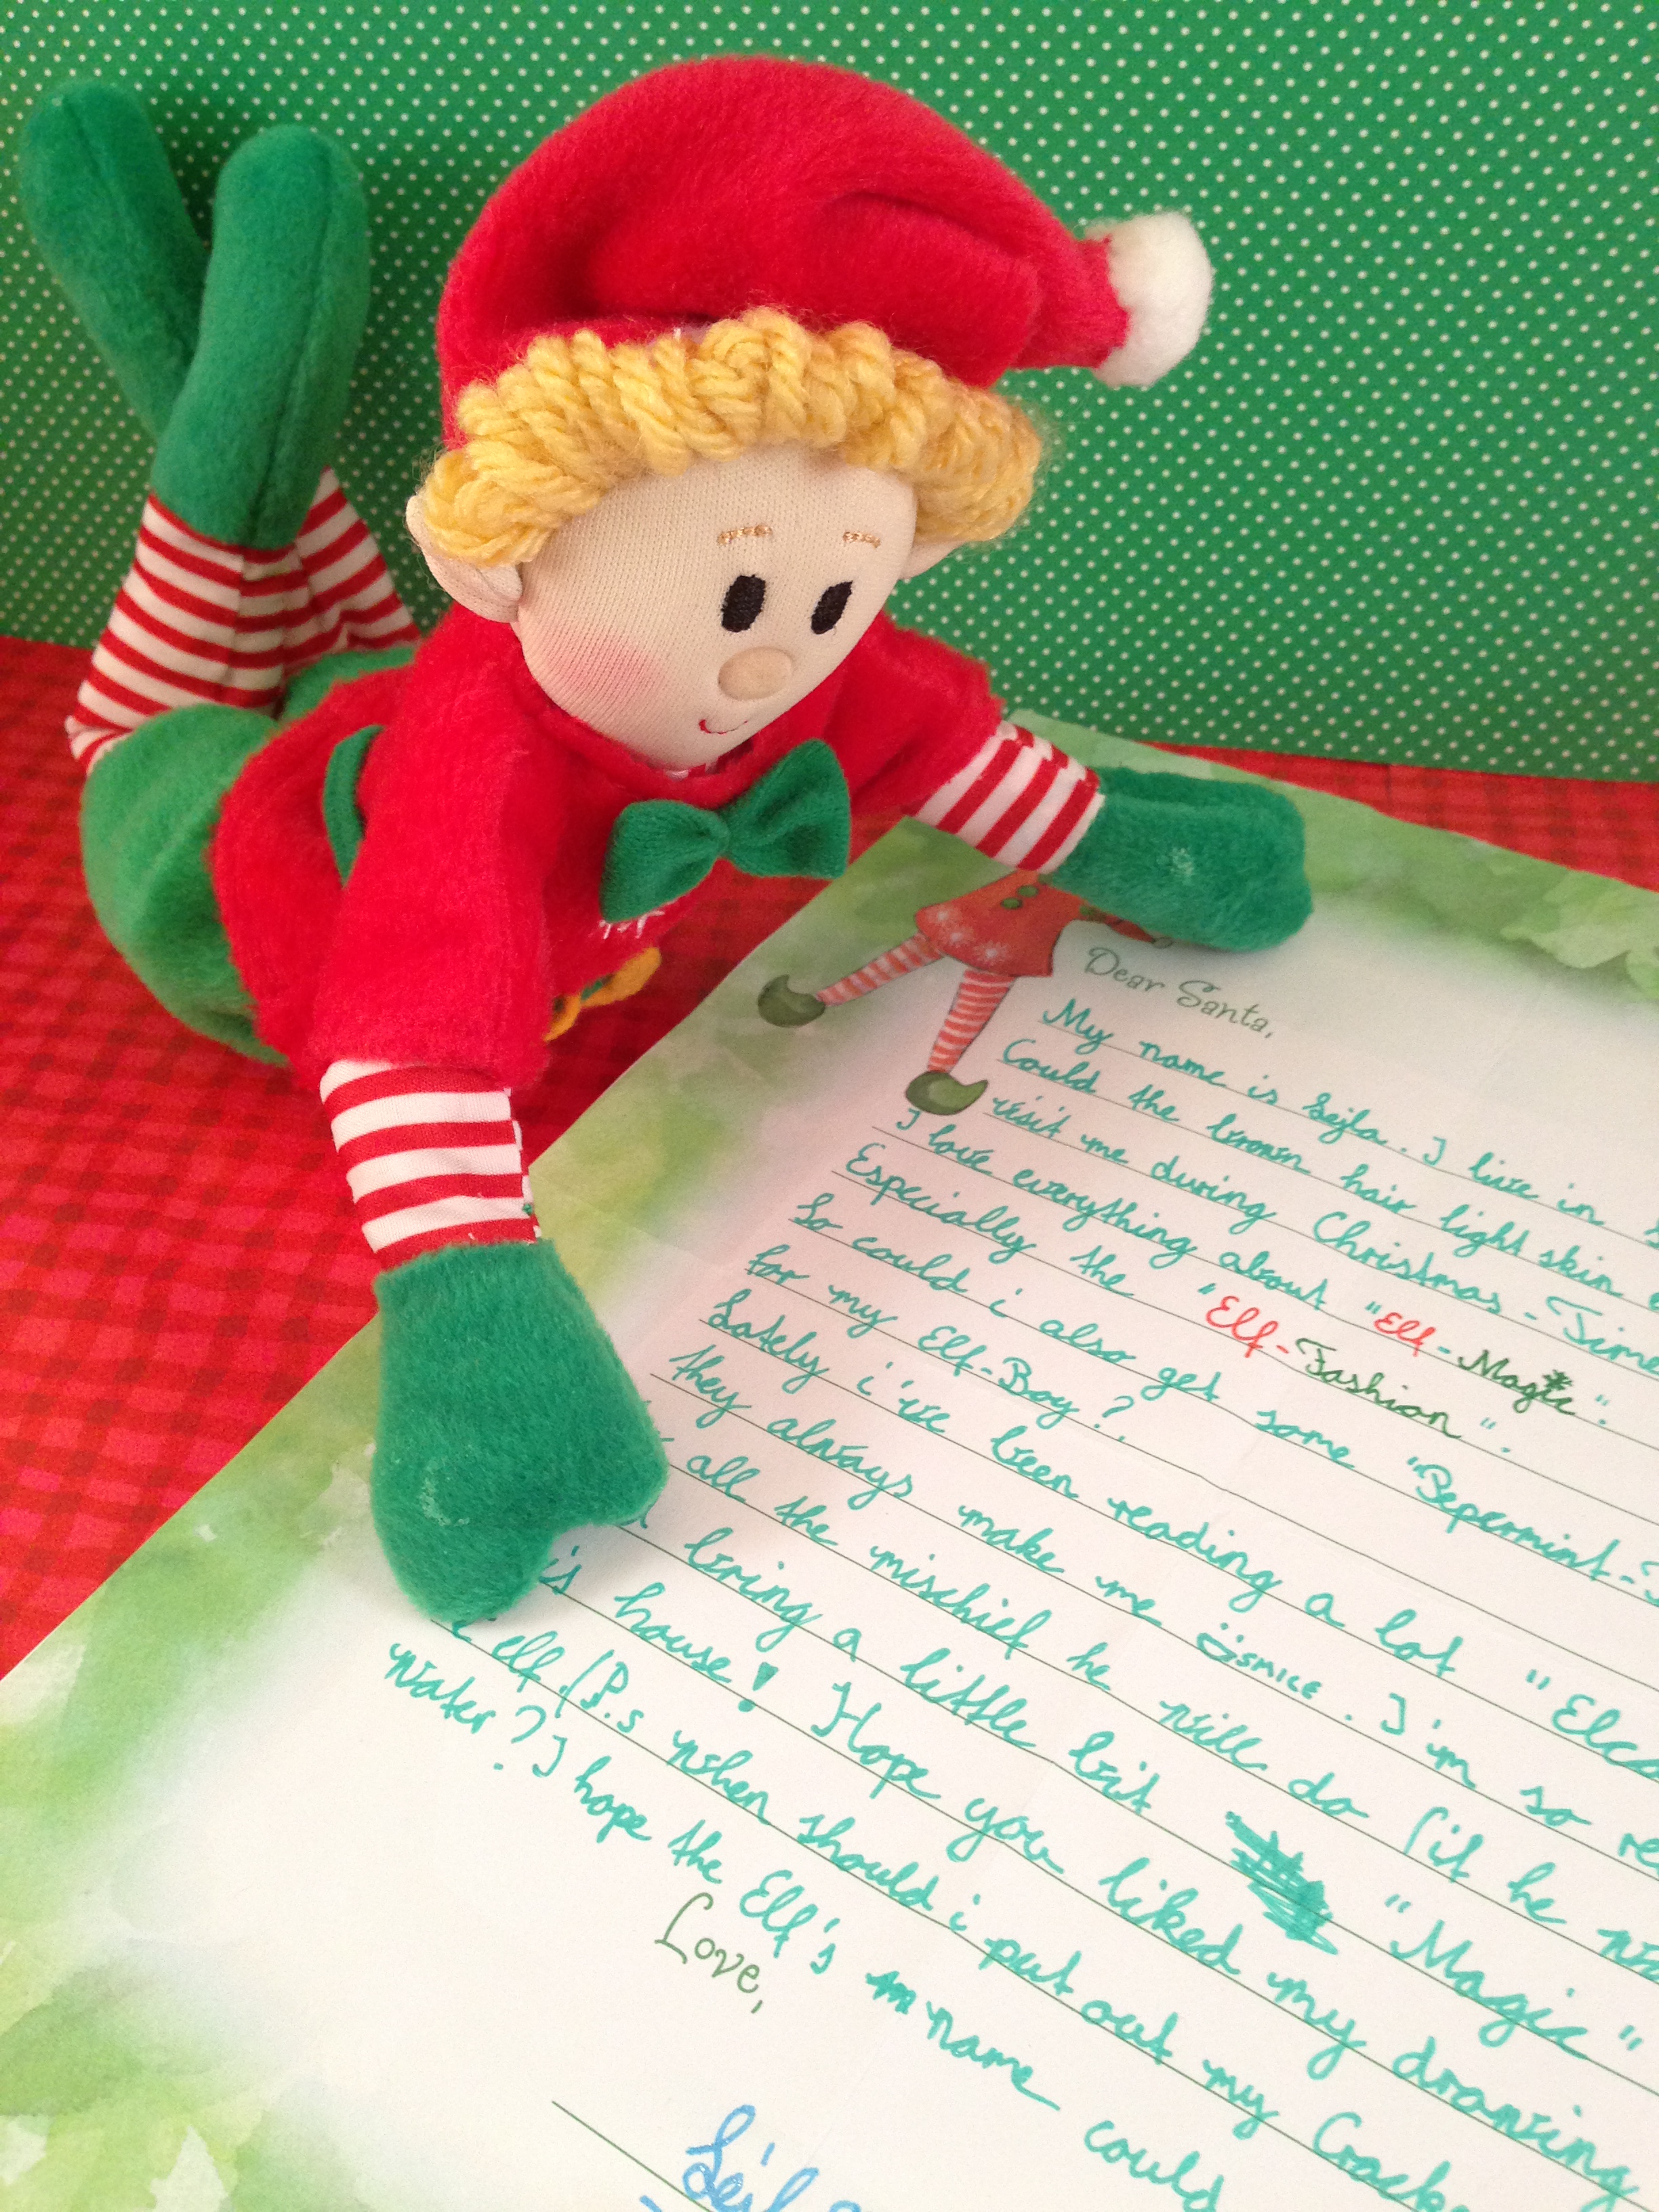 Dear Santa,
My name is Sejla. I live in
Could the brown hair light skin
visit me during Christmas-Time
I love everything about "Elf-Magic".
Especially the "Elf-Fashion".
So could i also get some "Pepermint-
for my Elf-Boy?
Lately i've been reading a lot "Elca
they always make me smice. I'm so re
all the mischief he will do (it he
bring a little bit "Magic"
is house! Hope you liked my drawing
elf. (P.s when should i put out my Crack
Water? I hope the Elf's name could
Love,